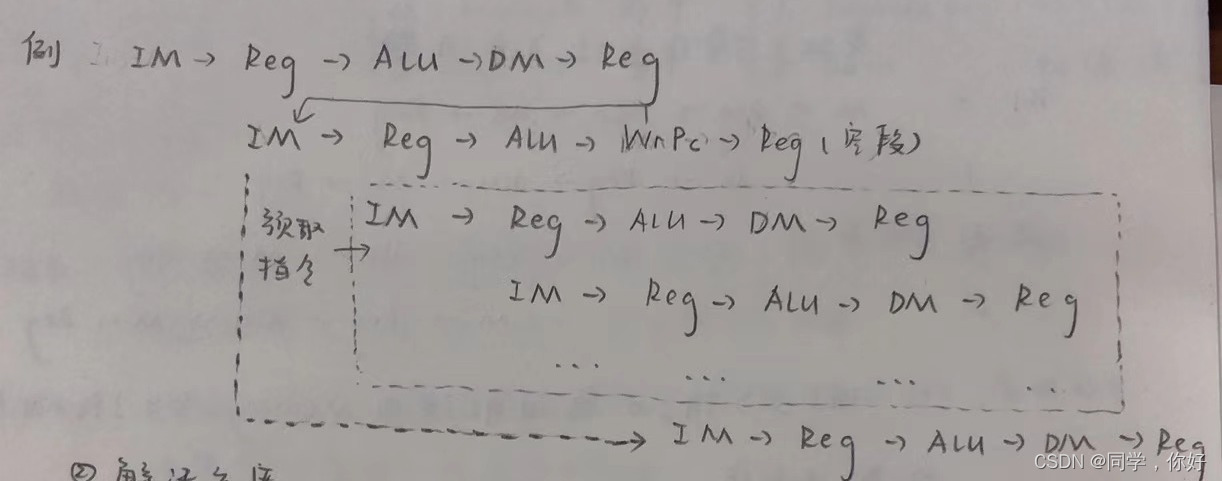 例 IM → Reg → ALU → DM → Reg
IM → Reg → ALU → WnPc → Reg (空段)
预取
指令
IM → Reg → ALU → DM → Reg
IM → Reg → ALU → DM → Reg
... ... ... ...
IM → Reg → ALU → DM → Reg
CSDN @同学，你好
②